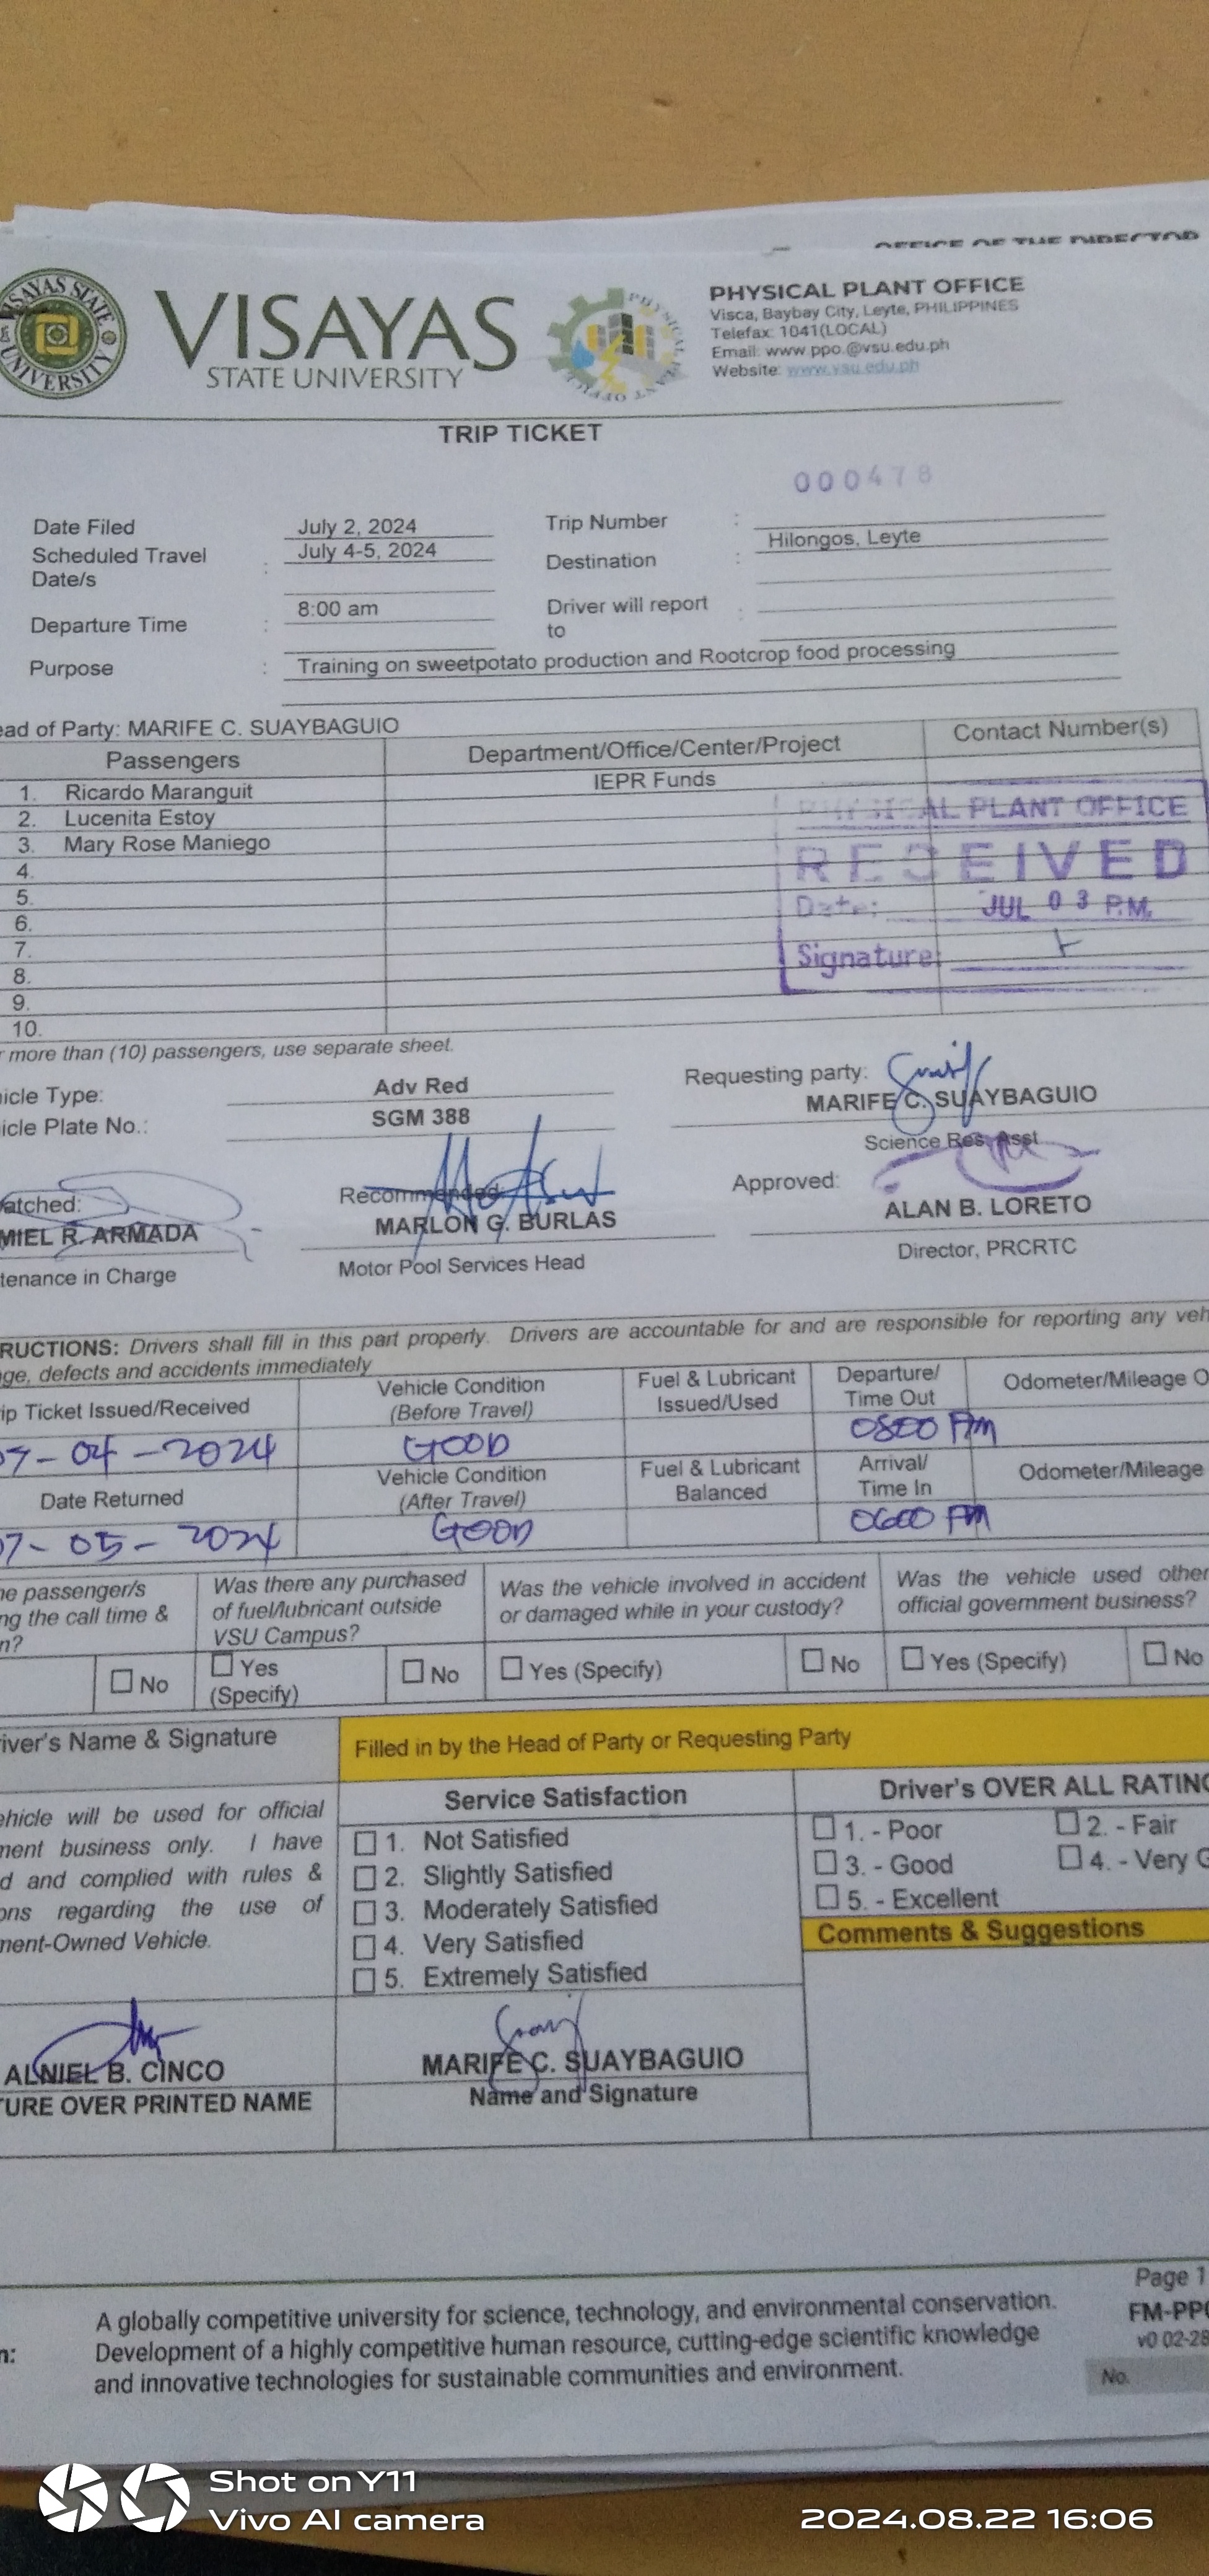 OFFICE OF THE DIRECTOR
VISAYAS STATE UNIVERSITY
VISAYAS
STATE UNIVERSITY
PHYSICAL PLANT OFFICE
PHYSICAL PLANT OFFICE
Visca, Baybay City, Leyte, PHILIPPINES
Telefax: 1041(LOCAL)
Email: www.ppo.@vsu.edu.ph
Website: www.vsu.edu.ph
TRIP TICKET
000478
Date Filed July 2, 2024 Trip Number :
Scheduled Travel Date/s : July 4-5, 2024 Destination : Hilongos, Leyte
Departure Time : 8:00 am Driver will report to :
Purpose : Training on sweetpotato production and Rootcrop food processing
ead of Party: MARIFE C. SUAYBAGUIO
Passengers Department/Office/Center/Project Contact Number(s)
1. Ricardo Maranguit IEPR Funds
2. Lucenita Estoy
3. Mary Rose Maniego
4.
5.
6.
7.
8.
9.
10.
PHYSICAL PLANT OFFICE
RECEIVED
Date: JUL 03 P.M.
Signature:
r more than (10) passengers, use separate sheet.
icle Type: Adv Red Requesting party:
icle Plate No.: SGM 388 MARIFE C. SUAYBAGUIO
Science Res. Asst.
atched: Recommended: Approved:
MIEL R. ARMADA MARLON G. BURLAS ALAN B. LORETO
tenance in Charge Motor Pool Services Head Director, PRCRTC
RUCTIONS: Drivers shall fill in this part properly. Drivers are accountable for and are responsible for reporting any veh
ge, defects and accidents immediately
ip Ticket Issued/Received Vehicle Condition (Before Travel) Fuel & Lubricant Issued/Used Departure/ Time Out Odometer/Mileage O
07-04-2024 GOOD 0800 PM
Date Returned Vehicle Condition (After Travel) Fuel & Lubricant Balanced Arrival/ Time In Odometer/Mileage
07-05-2024 GOOD 0600 PM
ne passenger/s Was there any purchased Was the vehicle involved in accident Was the vehicle used other
ng the call time & of fuel/lubricant outside or damaged while in your custody? official government business?
n? VSU Campus?
No Yes (Specify) No Yes (Specify) No Yes (Specify) No
iver's Name & Signature Filled in by the Head of Party or Requesting Party
Service Satisfaction Driver's OVER ALL RATING
ehicle will be used for official
ment business only. I have
d and complied with rules &
ons regarding the use of
ment-Owned Vehicle.
1. Not Satisfied
2. Slightly Satisfied
3. Moderately Satisfied
4. Very Satisfied
5. Extremely Satisfied
1. - Poor 2. - Fair
3. - Good 4. - Very G
5. - Excellent
Comments & Suggestions
ALNIEL B. CINCO MARIFE C. SUAYBAGUIO
TURE OVER PRINTED NAME Name and Signature
Page 1
FM-PPO
v0 02-28
No.
A globally competitive university for science, technology, and environmental conservation.
n: Development of a highly competitive human resource, cutting-edge scientific knowledge
and innovative technologies for sustainable communities and environment.
Shot on Y11
Vivo AI camera
2024.08.22 16:06